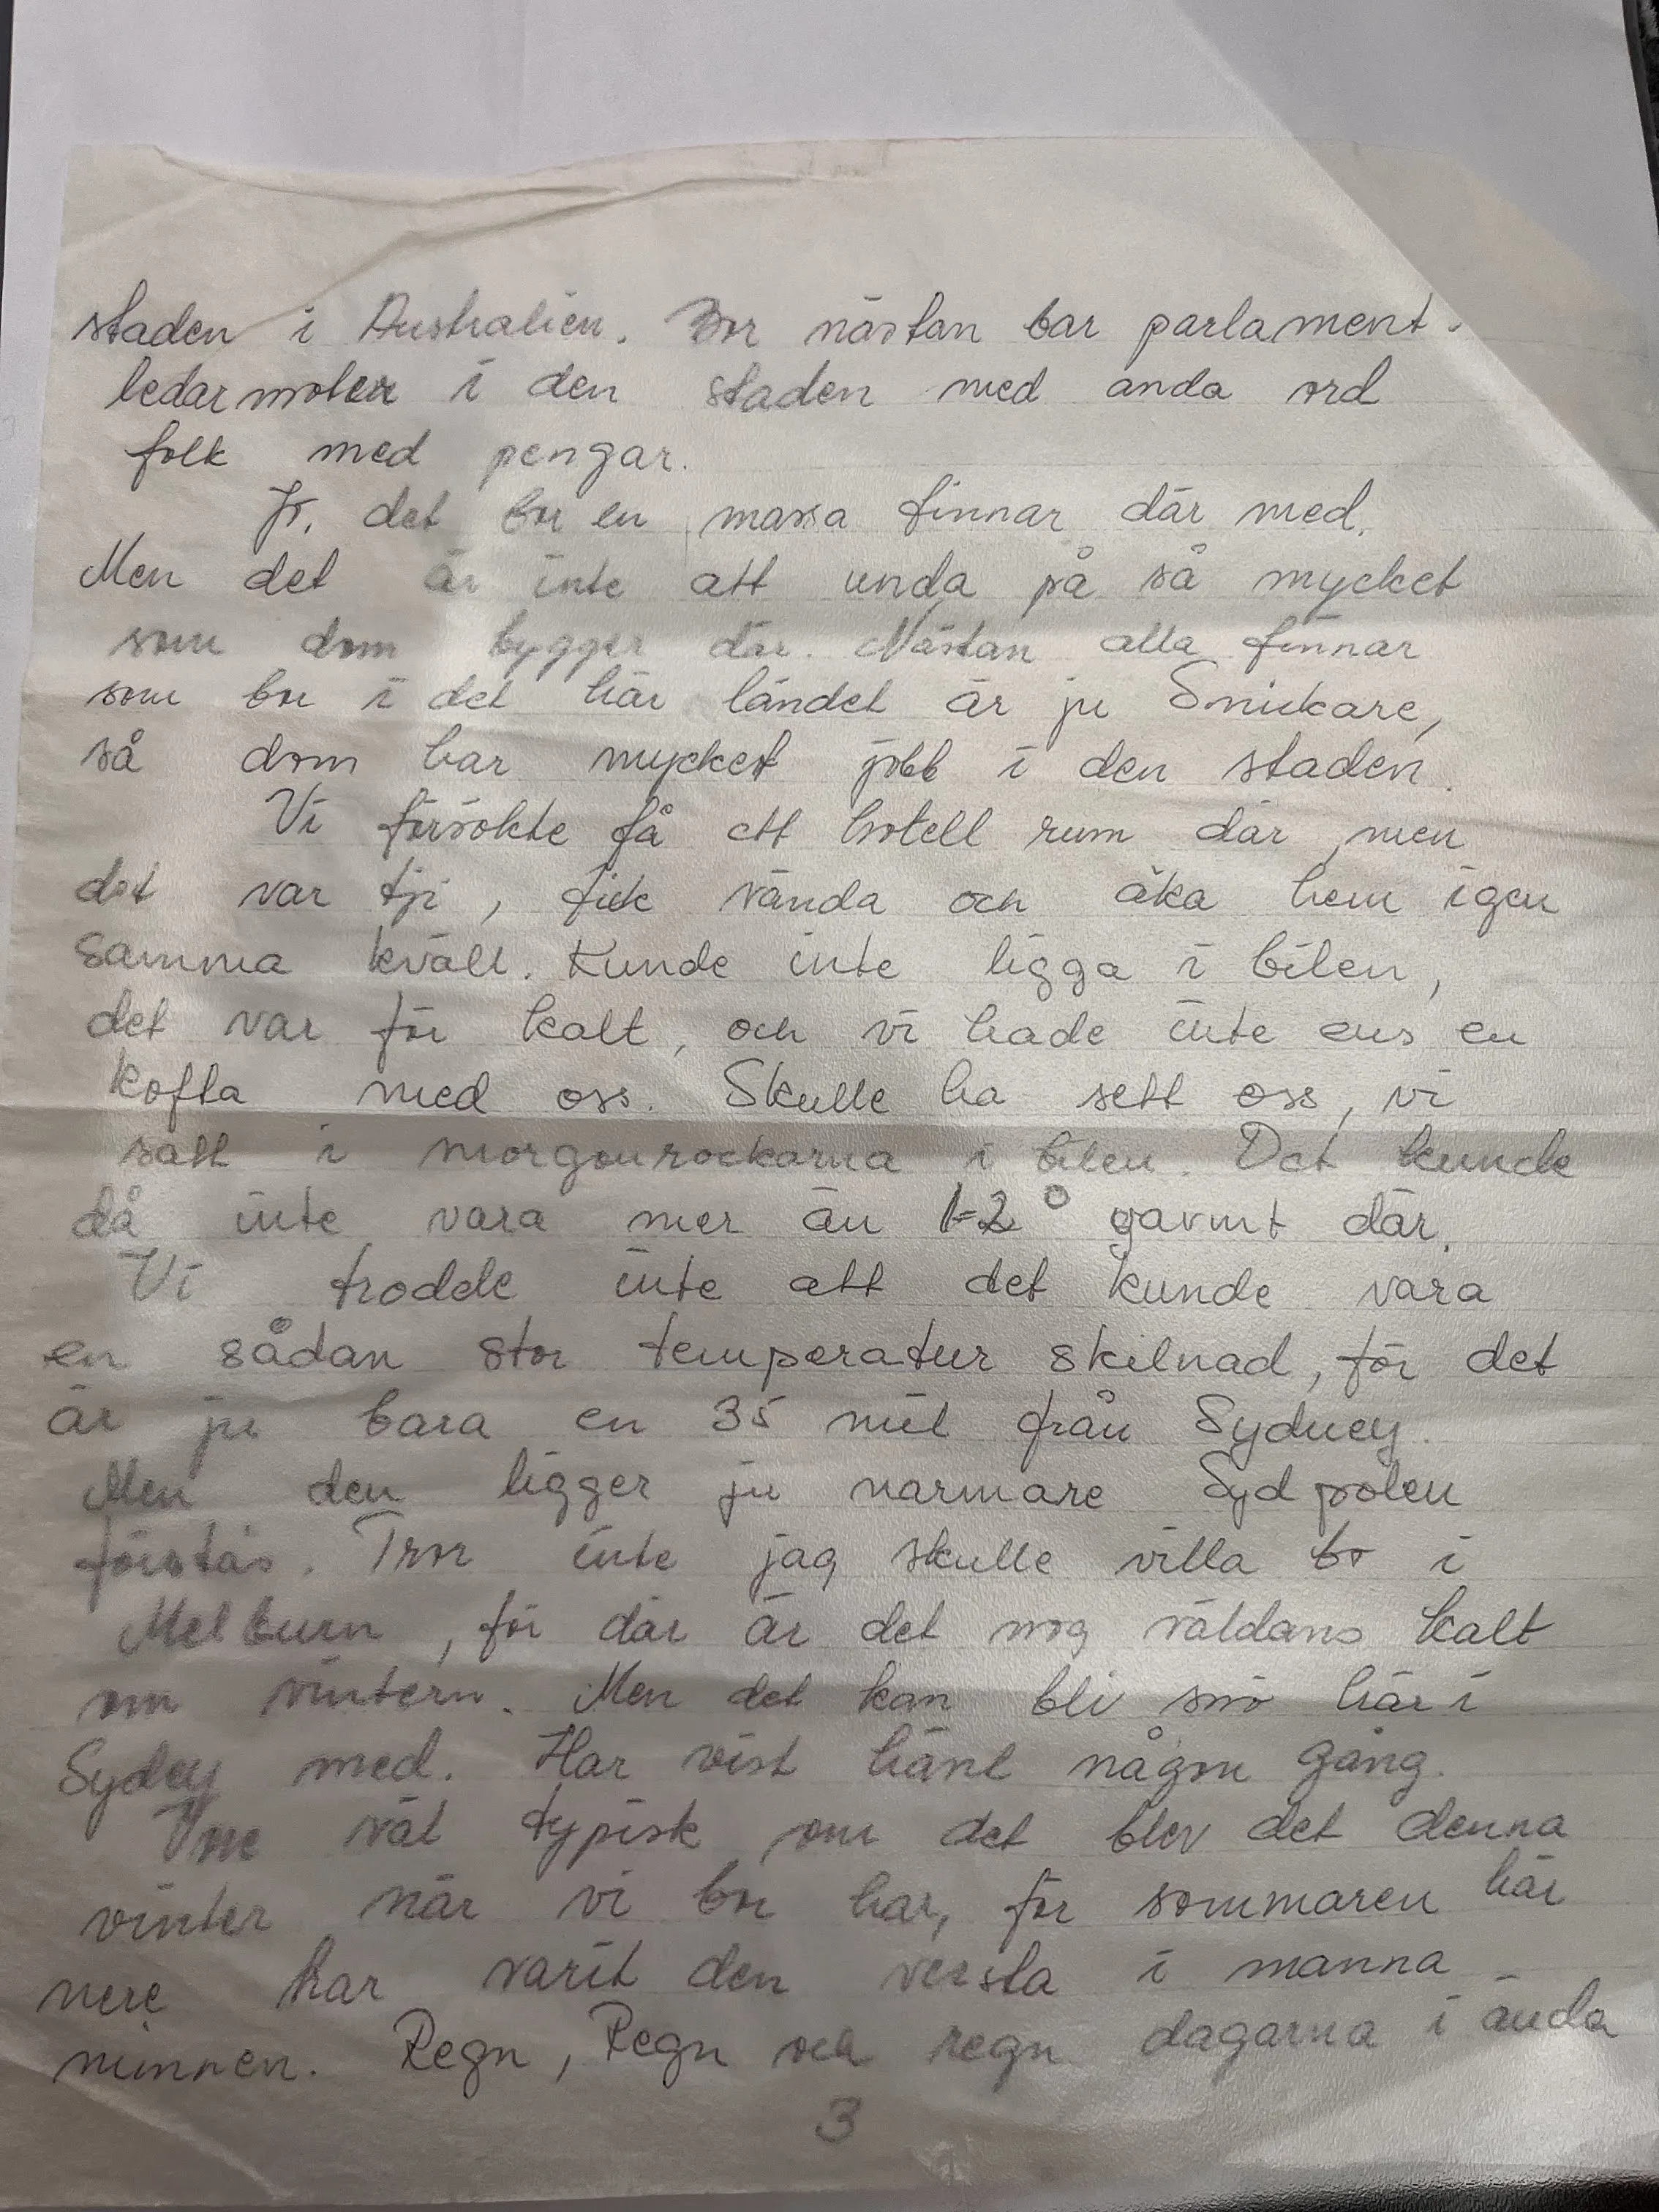 staden i Australien. Bor nästan bar parlament-
ledarmoter i den staden med anda ord
folk med pengar.
Jo, det bor en massa finnar där med.
Men det är inte att unda på så mycket
som dom bygger där. Nästan alla finnar
som bor i det här landet är ju Snickare,
så dom har mycket jobb i den staden.
Vi försökte få ett hotell rum där men
det var tji, fick vända och åka hem igen
samma kväll. Kunde inte ligga i bilen,
det var för kalt, och vi hade inte ens en
kofta med oss. Skulle ha sett oss, vi
satt i morgonrockarna i bilen. Det kunde
då inte vara mer än 1-2° varmt där.
Vi trodde inte att det kunde vara
en sådan stor temperatur skilnad, för det
är ju bara en 35 mil från Sydney.
Men den ligger ju narmare Sydpolen
förstås. Tror inte jag skulle villa bo i
Melburn, för där är det nog väldans kalt
om vintern. Men det kan bli snö här i
Sydey med. Har vist hänt någon gång.
Vore väl typisk om det blev det denna
vinter när vi bor har, för sommaren här
nere har varit den versta i manna
minnen. Regn, Regn och regn dagarna i ända
3